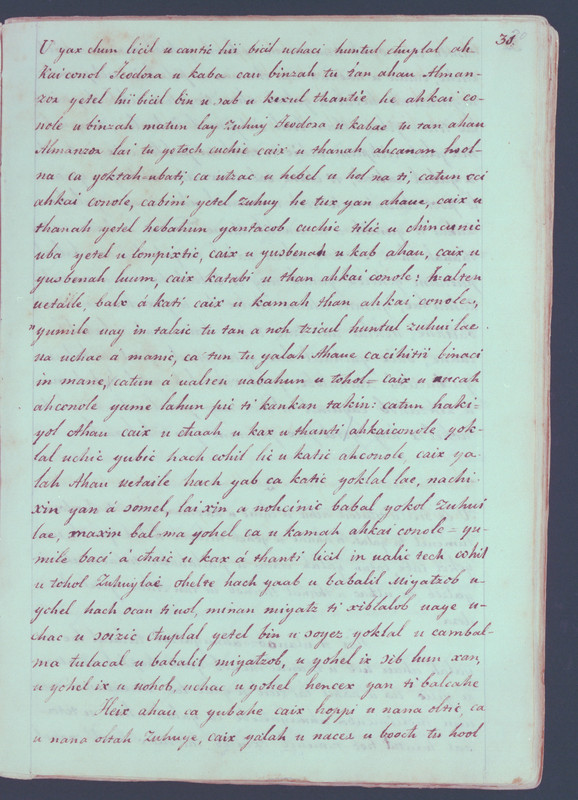 38.
U yax chun licil u cantic hii bicil uchaci huntul chuplal ah-
kai conol Teodora u kaba cau binzah tu tan ahau Alman-
zor yetel hii bicil bin u sab u kexul thantic he ahkai co-
nole u binzah matun lay Zuhuy Teodora u kabae tu tan ahau
Almanzora lai tu yotoch cuchie caix u thanah ahcanan hool-
na ca yoktah-ubati, ca utzac u hebel u hol na ti, catun oci
ahkai conole, cabini yetel zuhuy he tux yan ahaue, caix u
thanah yetel hebahun yantacob cuchie tilic u chincunic
uba yetel u lompixtic, caix u yusbenah u kab ahau, caix u
yusbenah luum, caix katabi u than ahkai conole: h=alten
uetaile balx á kati caix u kamah than ahkai conole=,
"yumile uay in talzic tu tan a noh tzicul huntul zuhui lae
na uchac á manic, ca tun tu yalah Ahaue cacihitii binaci
in mane, catun á ualren uabahun u tohol= caix u nucah
ahconole yume lahun pic ti kankan takin: catun haki-
yol Ahau caix u chaah u kax u thanti ahkaiconole yok-
lal uchic yubic hach cohil lic u katic ahconole caix ya-
lah Ahau uetaile hach yab ca katic yoklal lae, nachi-
xin yan á somel, laixin a nohcinic babal yokol Zuhui
lae, maxin bal ma yohel ca u kamah ahkai conole= yu-
mile baci á chaic u kax á thanti licil in ualic tech cohil
u tohol Zuhuylae ohelte hach yaab u babalil Miyatzob u-
yohel hach ocan ti uol, minan miyatz ti xiblalob uaye u-
chac u soizic chuplal yetel bin u soyez yoklal u cambal-
ma tulacal u babalil miyatzob, u yohel ix sib hun xan,
u yohel ix u uohob, uchac u yohel hencex yan ti balcahe
Heix ahau ca yubahe caix hoppi u nana oltic ca
u nana oltah Zuhuye, caix yalah u naces u booch tu hool